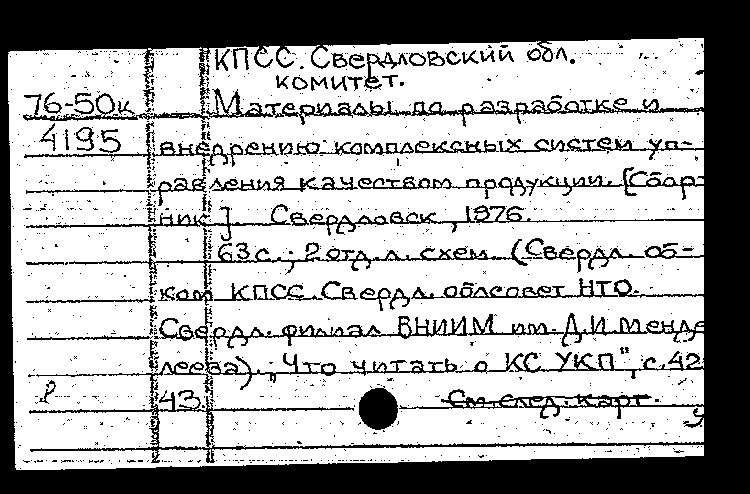 КПСС. Свердловский обл.
комитет.
76-50к Материалы по разработке и
4195 внедрению комплексных систем уп-
равления качеством продукции. [Сбор-
ник]. Свердловск, 1976.
63 с.; 2 отд. л. схем. (Свердл. об-
ком КПСС. Свердл. облсовет НТО.
Свердл. филиал ВНИИМ им. Д.И. Менде
леева). "Что читать о КС УКП", с. 42
43. См. след. карт.